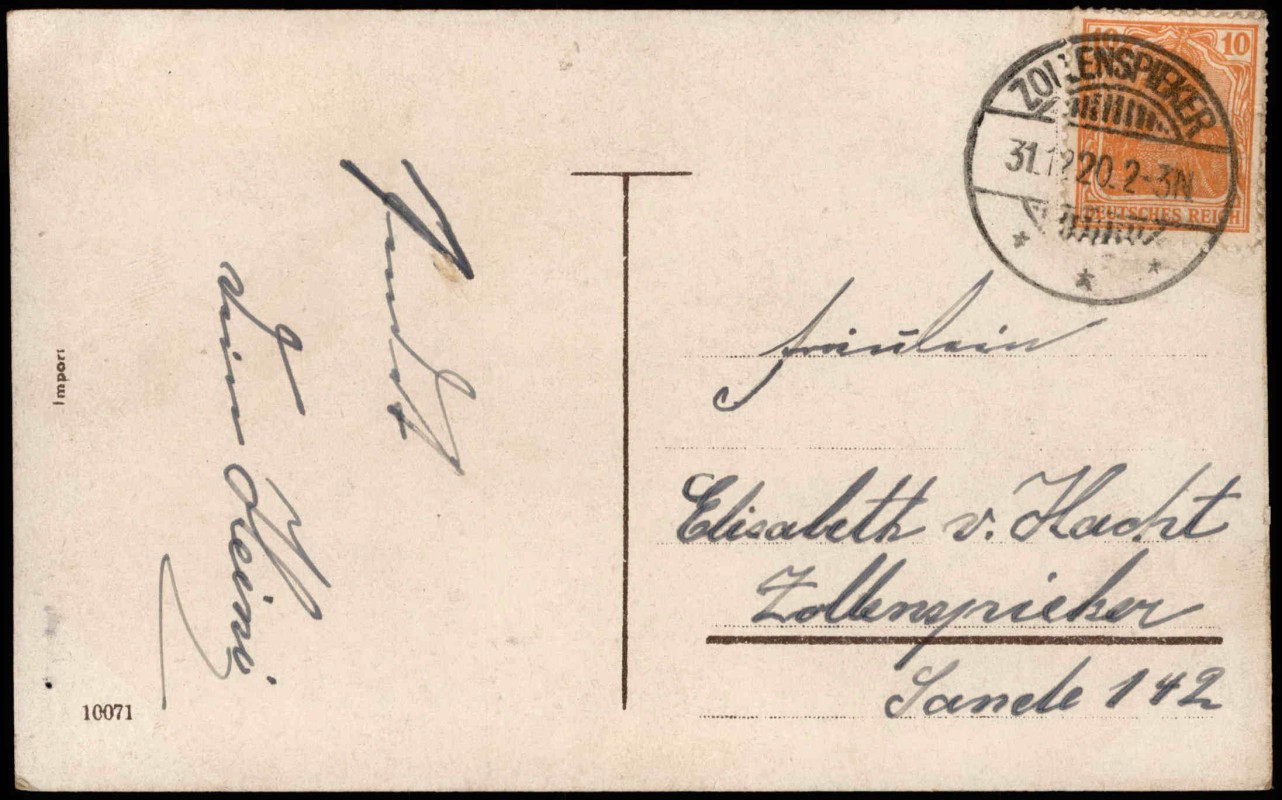 10 10
DEUTSCHES REICH
ZOLLENSPIEKER
31.12.20. 2-3N
Dein Heini
Import
10071
Fräulein
Elisabeth v. Hacht
Zollenspieker
Sande 142